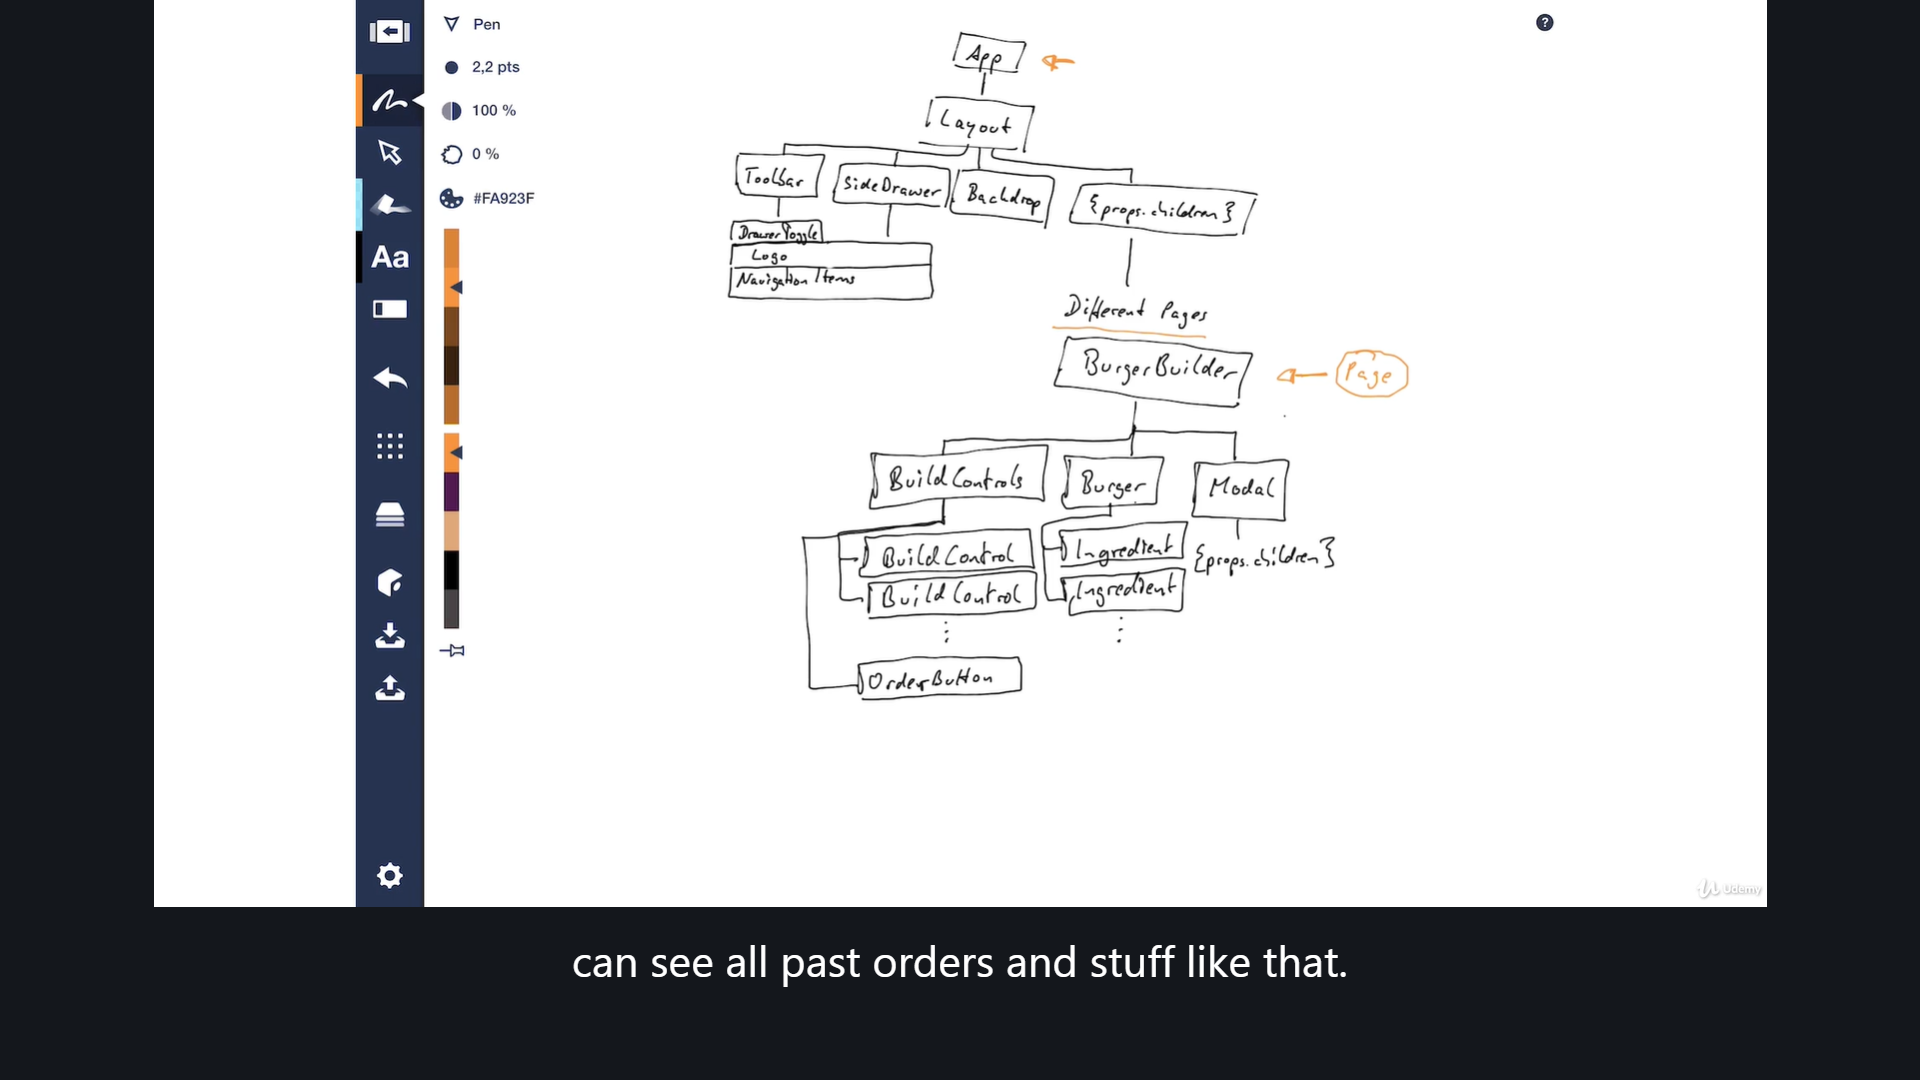 Pen
2,2 pts
100 %
0 %
#FA923F
Aa
?
App
Layout
Toolbar
SideDrawer
Backdrop
{props.children}
DrawerToggle
Logo
Navigation Items
Different Pages
BurgerBuilder
Page
BuildControls
Burger
Modal
BuildControl
Ingredient
{props.children}
BuildControl
Ingredient
OrderButton
Udemy
can see all past orders and stuff like that.